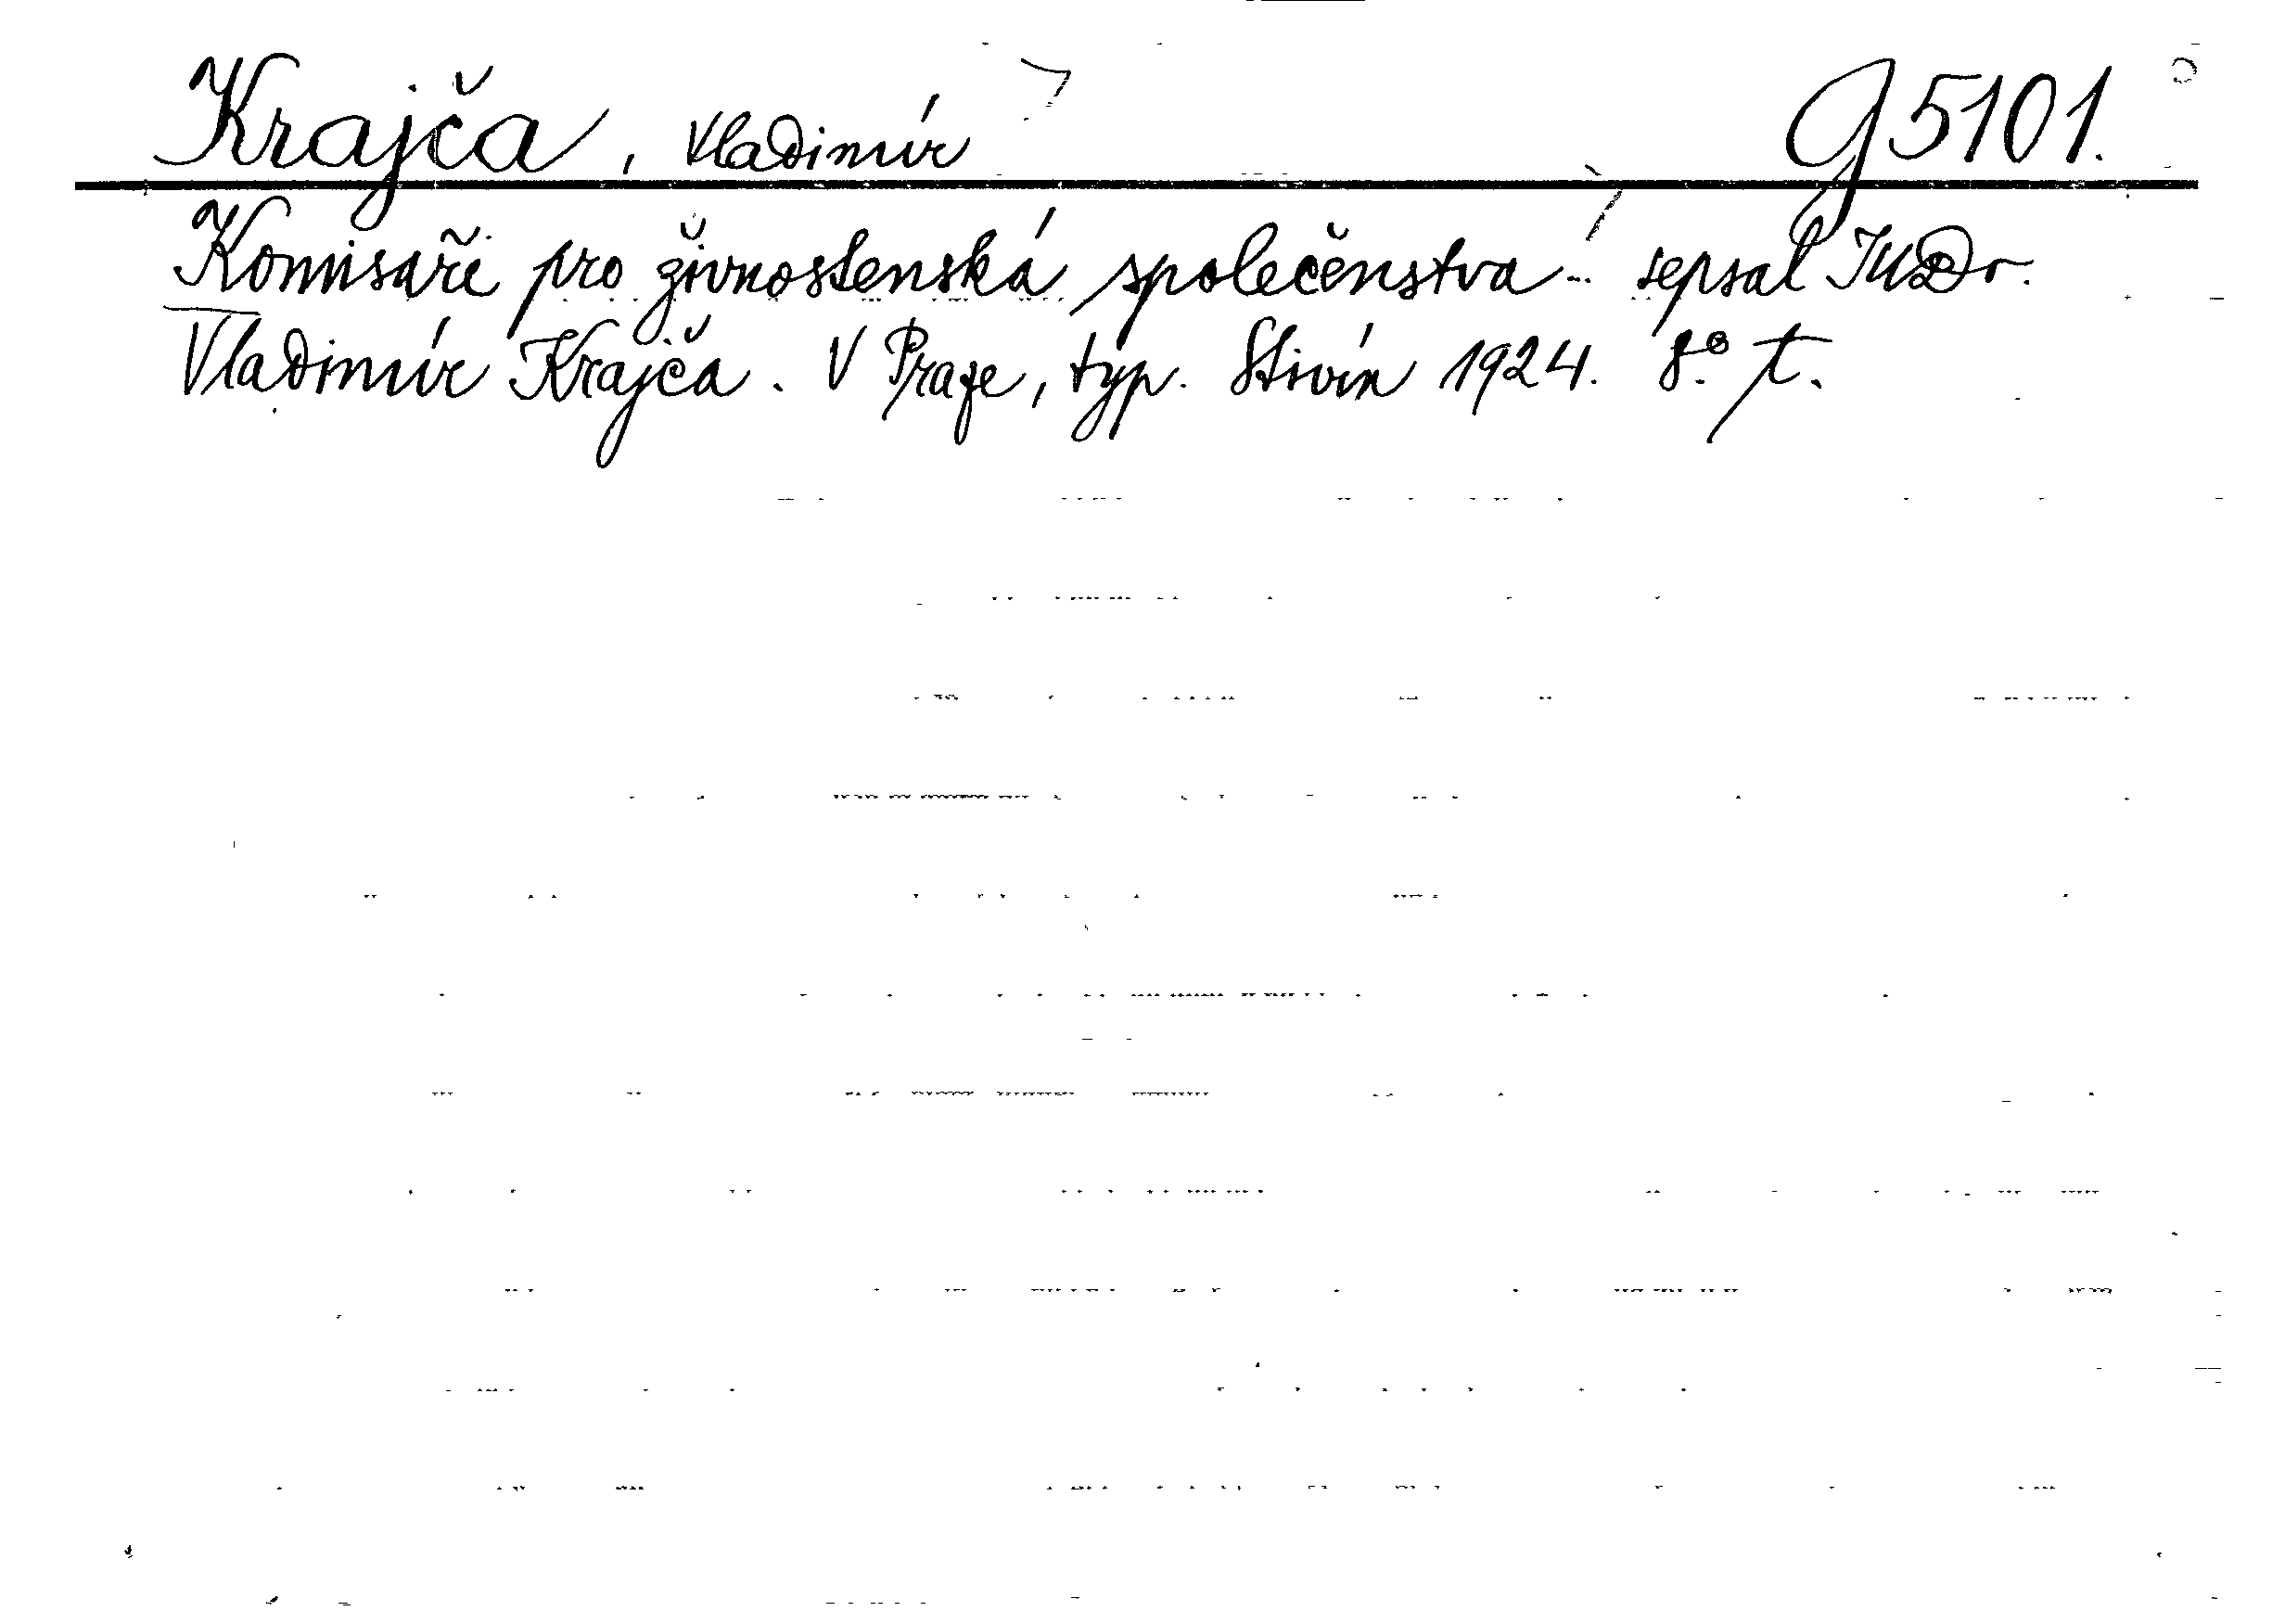 Krajča, Vladimír G 5101.
Komisaři pro živnostenská společenstva... sepsal JUDr.
Vladimír Krajča. V Praze, typ. Stivín 1924. 8° t.